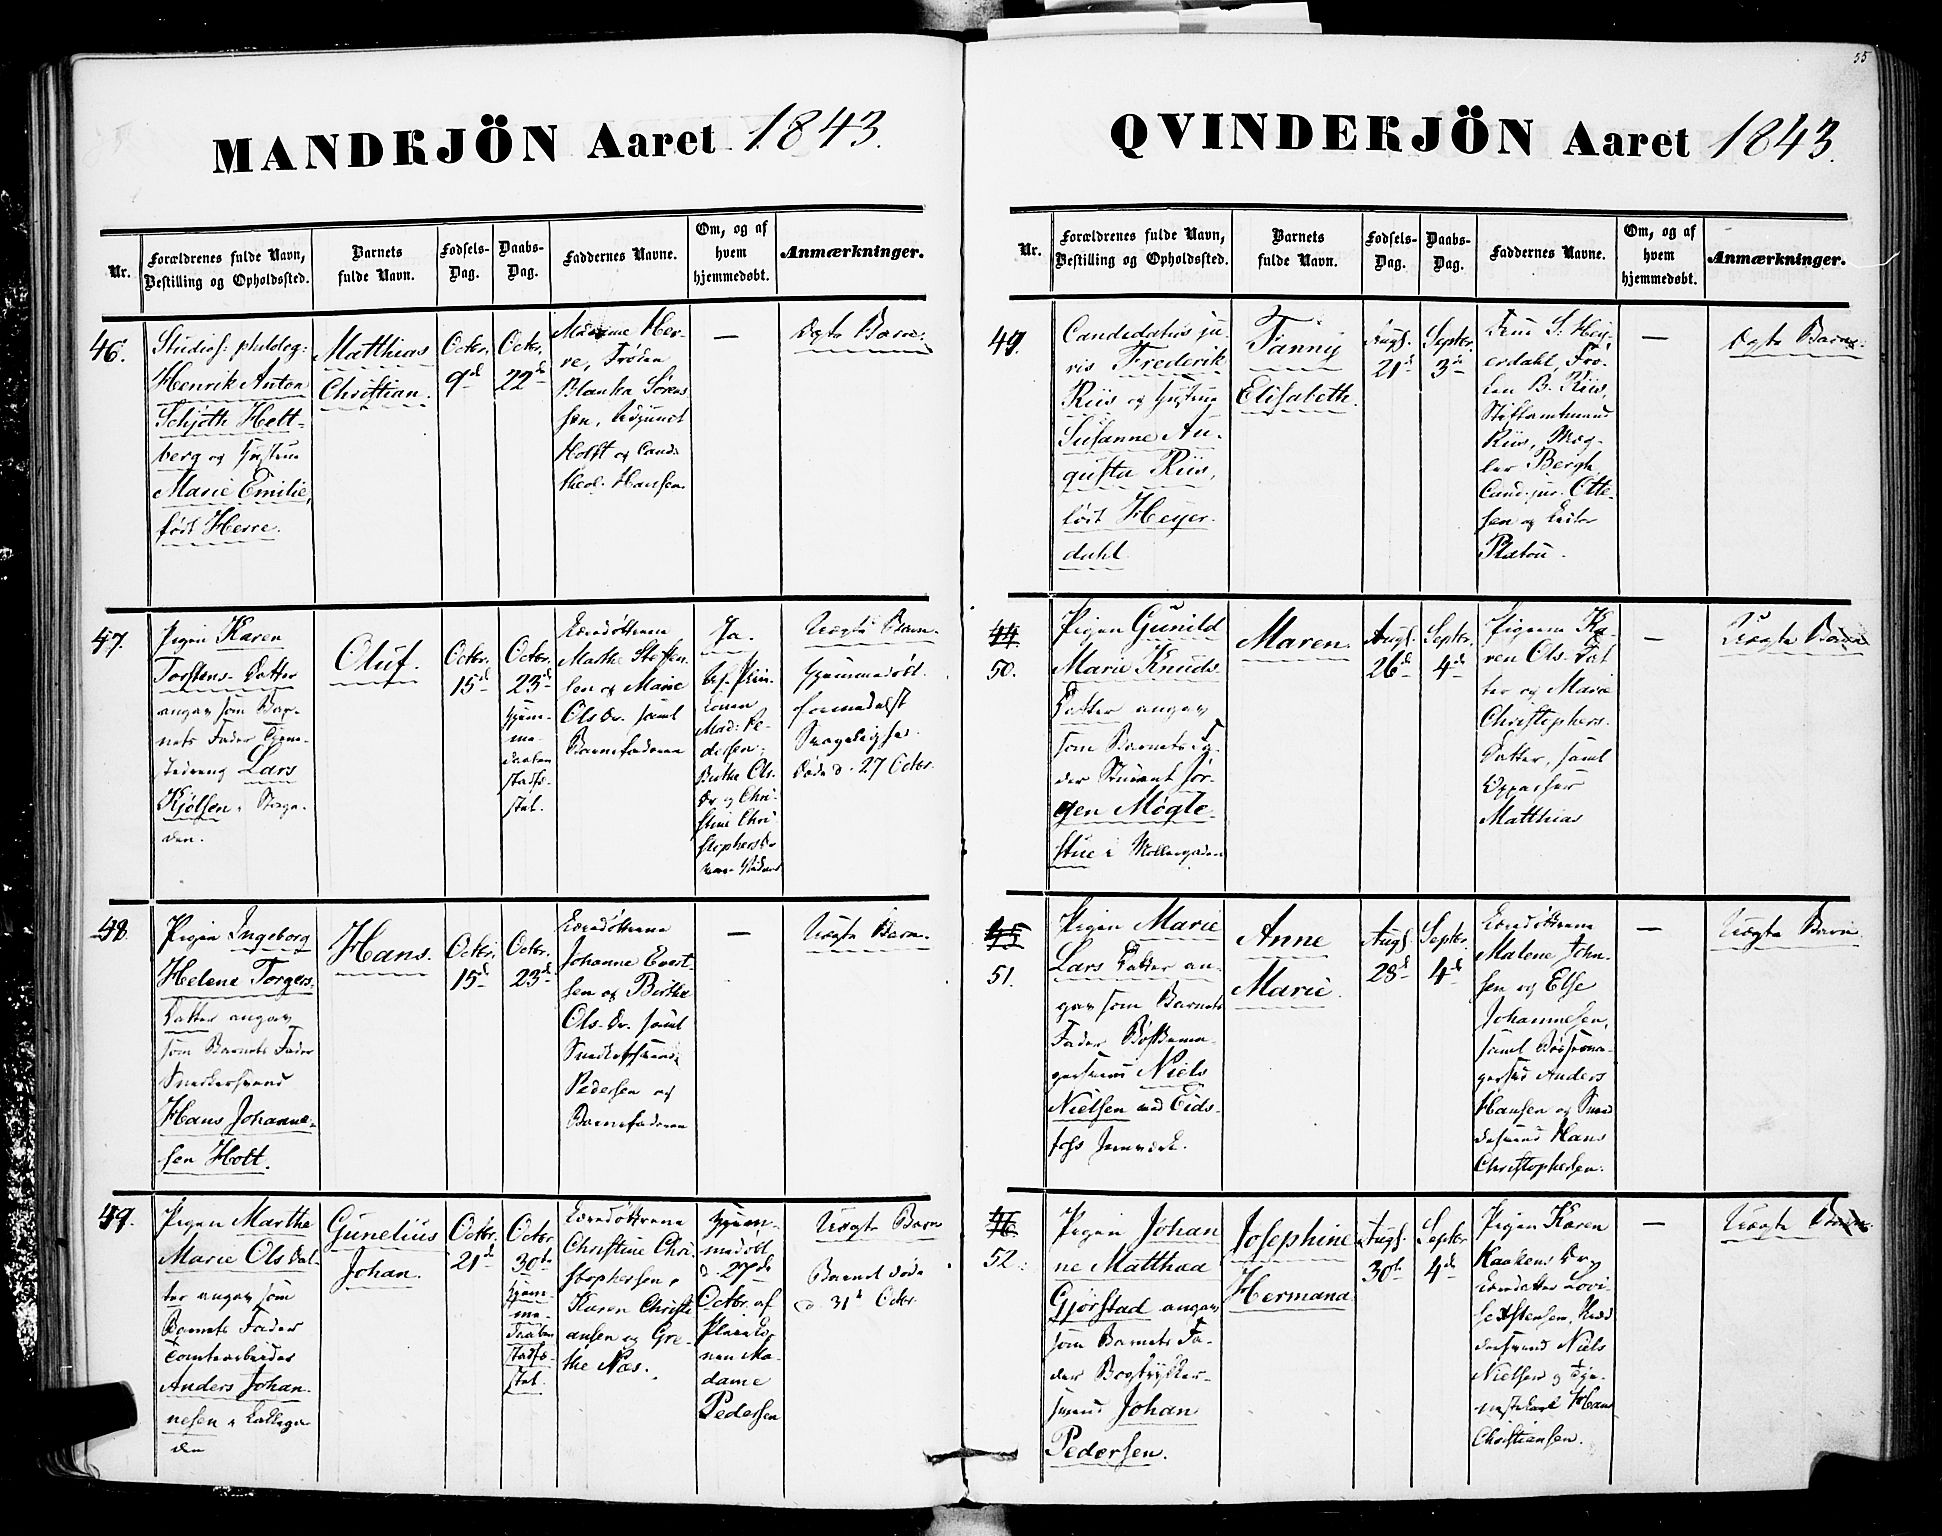 55
MANDKJÖN Aaret 1843.
Nr.
Forældrenes fulde Navn,
Bestilling og Opholdssted.
Barnets
fulde Navn.
Fødsels-
Dag.
Daabs-
Dag.
Faddernes Navne.
Om, og af
hvem
hjemmedøbt.
Anmærkninger.
46.
Studios. philolog.
Henrik Anton
Schjöth Helt-
berg og Hustrue
Marie Emilie,
født Herre.
Matthias
Christian.
Octbr.
9d
Octbr.
22d
Madame Her-
re, Frøken
Blanka Sörens
sen, Adjunct
Holst og Cand.
theol. Hansen.
—
Ægte Barn.
47.
Pigen Karen
Torstens Datter
angav som Bar-
nets Fader Tjene-
stedreng Lars
Kjølsen i Storga-
den.
Oluf.
Octbr.
15d
Octbr.
23d
hjem-
me-
daaben
stadfæ-
stet.
Marthe Steffen-
sen og Marie
Ols Dr. samt
Barnefaderen
Ja.
Mad: Pe-
dersen,
Berthe Ols
Dr. og Chri-
stine Chri-
stophers Dr
Uægte Barn.
Hjemmedøbt
formedelst
Svagelighed.
Døde d. 27 Octbr.
48.
Pigen Ingeborg
Helena Torgers
Datter angav
som Barnets Fader
Snedkersvend
Hans Johanne-
sen Holt.
Hans.
Octbr.
15d
Octbr.
23d
Johanne Evert-
sen og Berthe
Ols Dr. samt
Snedkersvend
Pedersen og
Barnefaderen
—
Uægte Barn.
49.
Pigen Marthe
Marie Ols Dat-
ter angav som
Barnets Fader
Tomtearbeider
Anders Johan-
nesen i
Gunelius
Johan.
Octbr.
21d
Octbr.
30te
hjem-
me-
daaben
stadfæ-
stet.
Christine Chri-
stophersen,
Karen Christi
ansen og Gre-
the Næs.
Hjem-
medøbt
d. 27de
Octbr. af
Ma-
dame
Pedersen
Uægte Barn
Barnet døde
d 31t Octbr.
QVINDEKJÖN Aaret 1843.
Nr.
Forældrenes fulde Navn,
Bestilling og Opholdssted.
Barnets
fulde Navn.
Fødsels-
Dag.
Daabs-
Dag.
Faddernes Navne.
Om, og af
hvem
hjemmedøbt.
Anmærkninger.
49.
Candidatus ju-
ris Frederik
Riis og Hustrue
Susanne Au-
gusta Riis,
født Heyer-
dahl
Fanny
Elisabeth.
Augs.
21d
Septbr.
3die
Frue S. Hey-
erdahl, Frø-
ken B. Riis,
Stiftamtmand
Riis, Mæg-
ler Bergh,
Cand. jur. Otte-
sen og Lector
Platou.
—
Ægte Barn.
44
50.
Pigen Gunild
Marie Knuds
Datter angav
som Barnets Fa-
der Student Jör-
gen Møgle-
stue i Møllergaden
Maren.
Augs.
26d
Septbr.
4de
Pigerne Ka-
ren Ols Dat
ter og Marie
Christophers.
Datter, samt
Oppasser
Matthias
—
Uægte Barn
45
51.
Pigen Marie
Lars Datter an-
gav som Barnets
Fader Bøssema-
gersvend Niels
Nielsen ved Eids-
fos Jernverk.
Anne
Marie.
Augs.
28d
Septbr.
4de
Malene John-
sen og Else
Johannesen,
samt Bøssema-
gersvd Anders
Hansen og Sned
kersvend Hans
Christophersen.
—
Uægte Barn
46
52.
Pigen Johan
ne Matthea
Gjörstad angav
som Barnets Fa-
der Bogtrykker-
svend Johan
Pedersen.
Josephine
Hermana
Augs.
30te
Septbr.
4de
Pigen Karen
Haakens Dr og
Lovi-
se
Niels
Nielsen og Tje-
nestekarl Hans
Christiansen.
—
Uægte Barn.